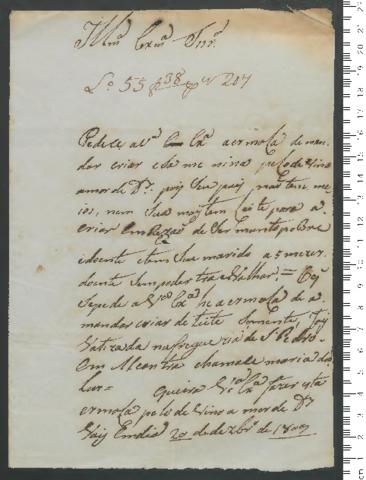 Illmº Exmº Snrº
Lº 55 f 38 Nº 207
Pedese a Vª Exª a ermola de man
dar criar esta me nina pelo devino
amor de Dˢ. puiz seu pay não tem me
ios, nem sua may tem leite para a
criar em Rezaõ de ser munto pobre
idoente e tem seu marido a 5 mezes
doente sem poder tra Balhar. = O que
sepede a Vª Exª he a ermola de a
mandar criar de leite somente, foy
Vatizada na fregue zia de S. Pedro
em Alcantra chamase maria da
Lus = Queira Vª Exª fazer esta
ermola pelo devino amor de Dˢ
Hoij em dia 20 de dezbrº de 1809